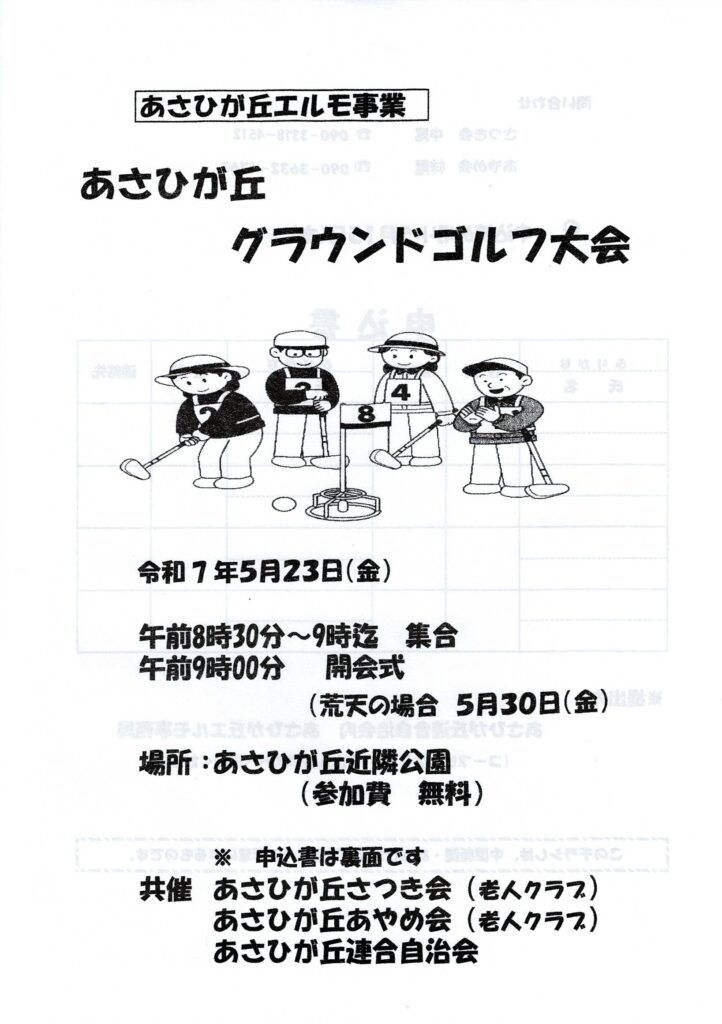 あさひが丘エルモ事業
あさひが丘
グラウンドゴルフ大会
2
3
4
8
令和７年5月23日(金)
午前8時30分～9時迄　集合
午前9時00分　開会式
(荒天の場合　5月30日(金)
場所：あさひが丘近隣公園
（参加費　無料）
※　申込書は裏面です
共催　あさひが丘さつき会（老人クラブ）
あさひが丘あやめ会（老人クラブ）
あさひが丘連合自治会
問い合わせ
さつき会　中尾　☎ 090-3718-4512
申込書
ふりがな
氏名
連絡先